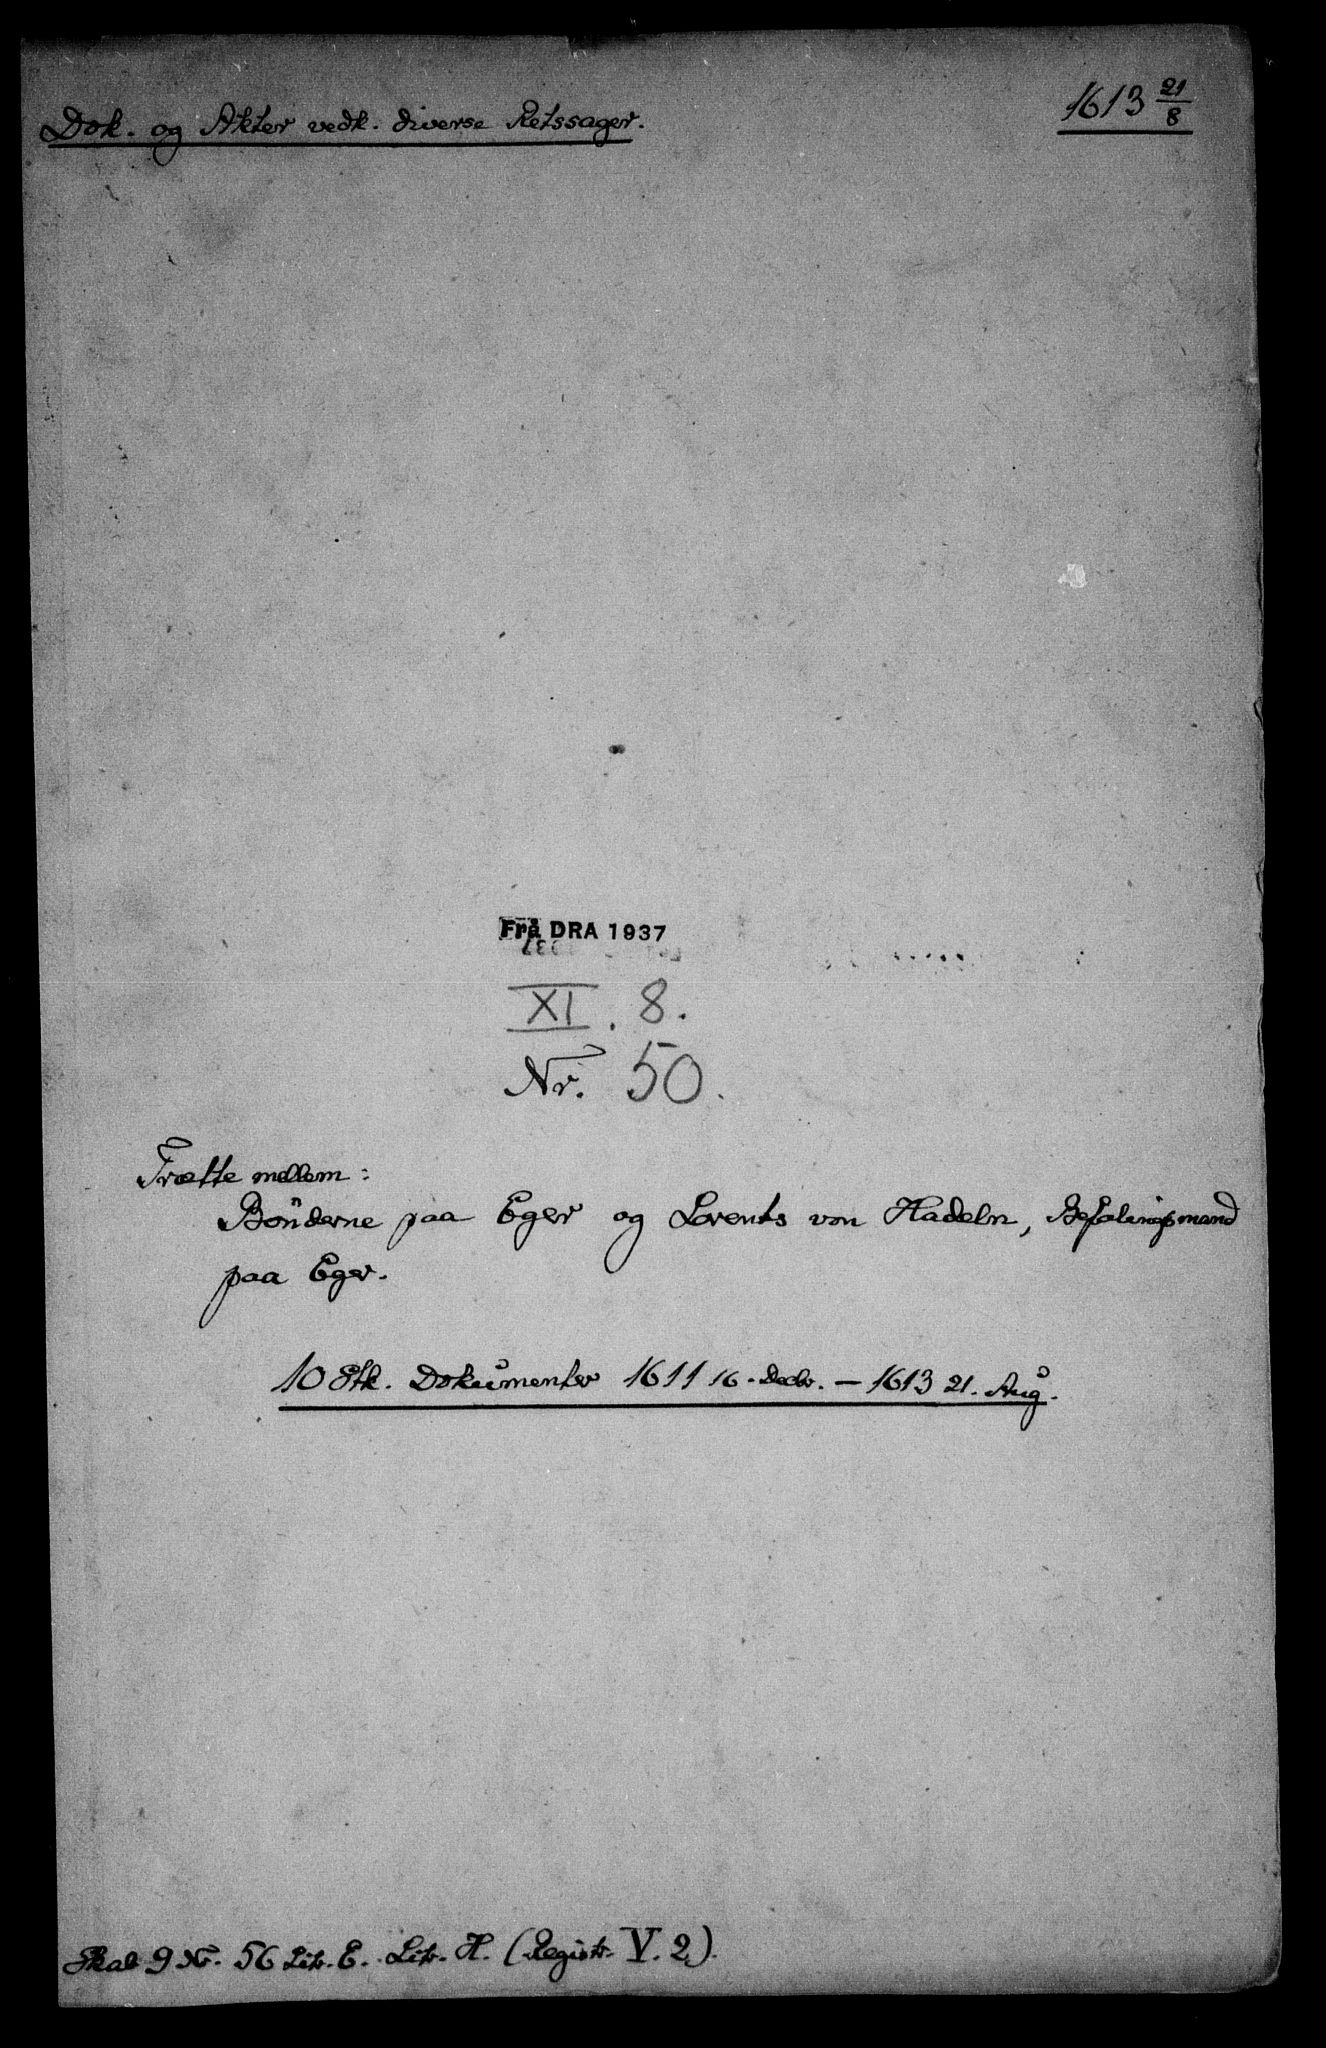 Dok. og Akter vedk. diverse Retssager.
1613 21/8
Frå DRA 1937
XI. 8.
Nr. 50.
Trætte mellem:
Bönderne paa Eger og Lorents von Hadeln, Befalingsmand
paa Eger.
10 Stk. Dokumenter 1611 16. Decbr. — 1613 21. Aug.
Skab 9 Nr. 56 Litr. E. Litr. H. (Registr. V. 2).